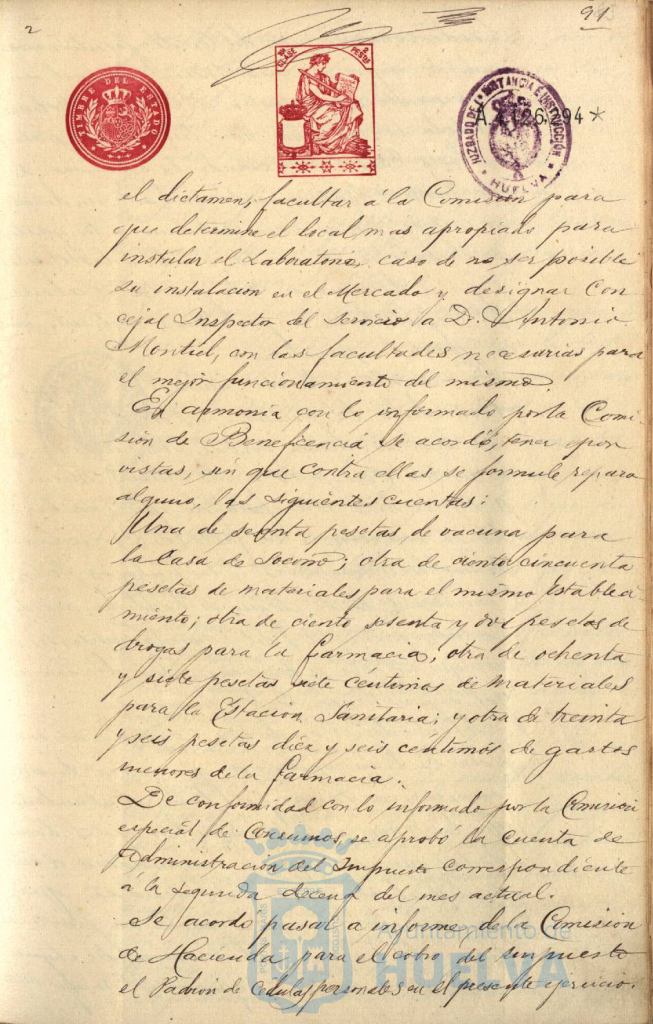 2
91
TIMBRE DEL ESTADO
CLASE
PESETAS
JUZGADO DE 1ª INSTANCIA E INSTRUCCIÓN
HUELVA
el dictamen, facultar á la Comisión para
que determine el local mas apropiado para
instalar el Laboratorio, caso de no ser posible
su instalacion en el Mercado y designar Con-
cejal Inspector del servicio a D. Antonio
Montiel, con las facultades necesarias para
el mejor funcionamiento del mismo.
En armonia con lo informado por la Comi-
sión de Beneficencia se acordó, tener por
vistas, sin que contra ellas se formule reparo
alguno, las siguientes cuentas:
Una de pesetas de vacuna para
la Casa de Socorro; otra de ciento cincuenta
pesetas de materiales para el mismo Estableci-
miento; otra de ciento sesenta y dos pesetas de
drogas para la farmacia; otra de ochenta
y siete pesetas siete céntimos de materiales
para la Estacion Sanitaria; y otra de treinta
y seis pesetas diez y seis centimos de gastos
menores de la farmacia.
De conformidad con lo informado por la Comisión
especial de Consumos, se aprobó la cuenta de
Administración del Impuesto correspondiente
á la segunda decena del mes actual.
Se acordo pasar a informe de la Comision
de Hacienda para el cobro del impuesto
el Padron de Cedulas personales en el presente ejercicio.
Ayuntamiento de
HUELVA